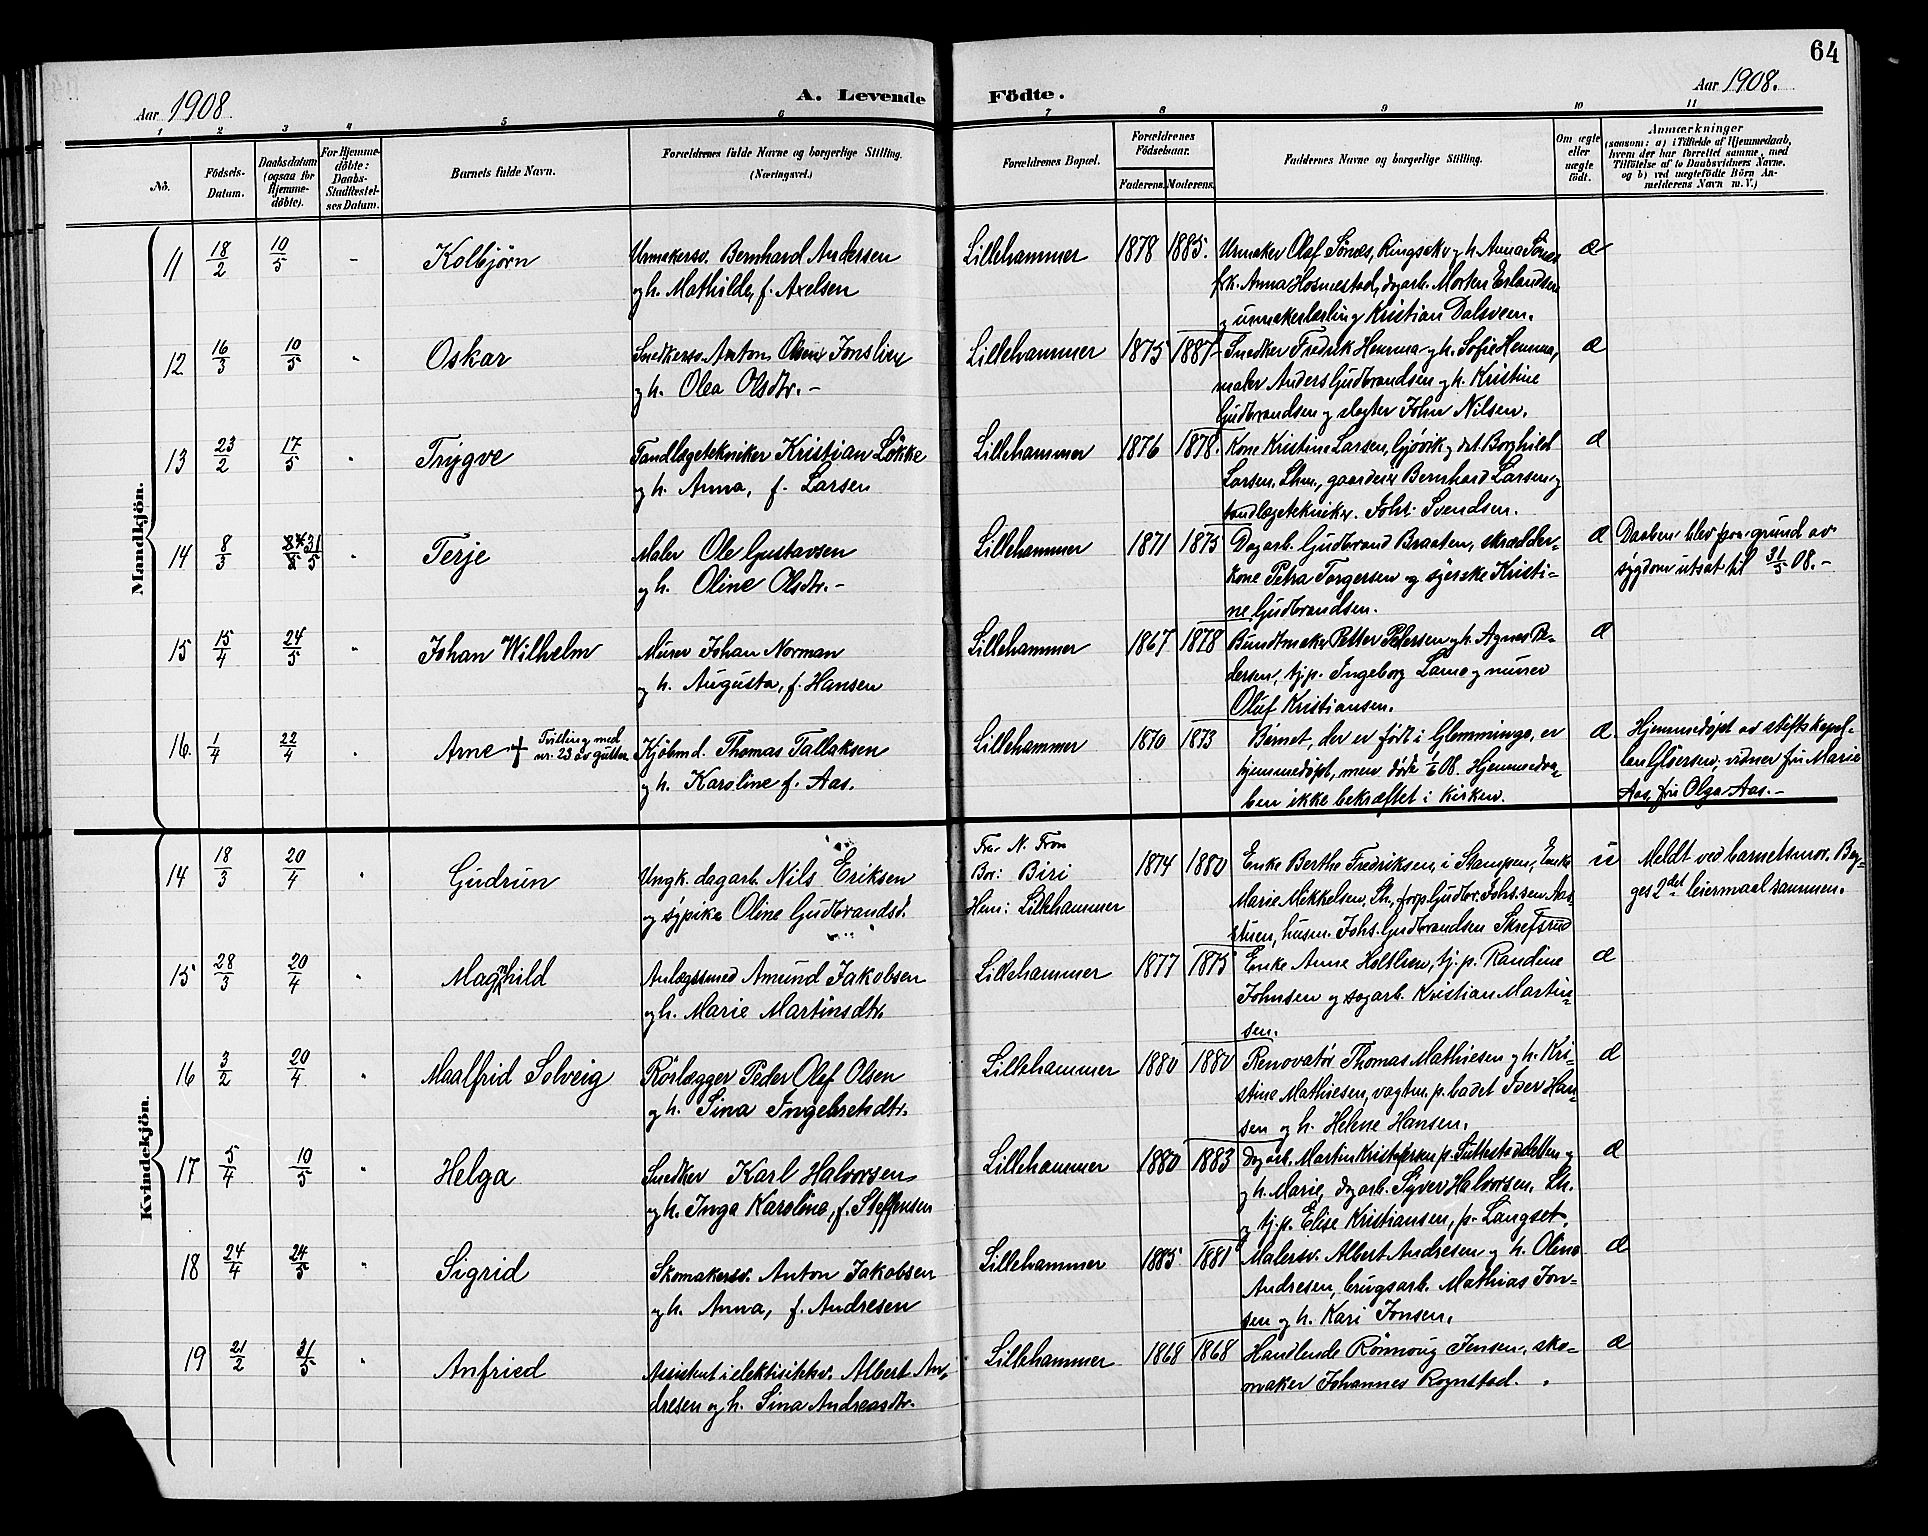 64
Aar 1908
A. Levende
Födte.
Aar 1908.
1 2 3 4 5 6 7 8 9 10 11
No.
Födsels-
Datum.
Daabsdatum
(ogsaa for
Hjemme-
döbte).
For Hjemme-
döbte:
Daabs-
Stadfæstel-
ses Datum.
Barnets fulde Navn.
Forældrenes fulde Navne og borgerlige Stilling.
(Næringsvei.)
Forældrenes Bopæl.
Forældrenes
Födselsaar.
Faderens. Moderens.
Faddernes Navne og borgerlige Stilling.
Om ægte
eller
uægte
födt.
Anmærkninger
(saasom: a) i Tilfælde af Hjemmedaab,
hvem der har forrettet samme, med
Tilföielse af to Daabsvidners Navne.
og b) ved uægtefödte Börn An-
melderens Navn m. V.)
Mandkjön.
11 18/2 10/5 - Kolbjörn
Urmakersv. Bernhard Andersen
og h. Mathilde, f. Axelsen
Lillehammer 1878 1885.
Urmaker Olaf Sönes, Ringsak. og h. Anna Sönes
frk. Anna Hosmestad, dagarb. Morten Erlandsen
og urmakerlærling Kristian Dalsveen.
æ
12 16/3 10/5 " Oskar
Snedkersv. Anton Olsen Jonslien
og h. Olea Olsdtr. -
Lillehammer 1875 1887
Snedker Fredrik Hemma og h. Sofie Hemma,
maler Anders Gudbrandsen og h. Kristine
Gudbrandsen og slagter John Nilsen.
æ
13 23/2 17/5 " Trygve
Tandlægetekniker Kristian Lökke
og h. Anna, f. Larsen
Lillehammer 1876 1878.
Kone Kristine Larsen, Gjøvik, og dat. Borghild
Larsen, Lhm., gaardeier Bernhard Larsen og
tandlægetekniker. Johs. Svendsen.
æ
14 8/3 31/5 " Terje
Maler Ole Gustavsen
og h. Oline Olsdtr. -
Lillehammer 1871 1875
Dagarb. Gudbrand Braaten, skrædder-
kone Petra Torgersen og syerske Kristi-
ne Gudbrandsen.
æ
Daaben blev paa grund av
sygdom utsat til 31/5 08. -
15 15/4 24/5 " Johan Wilhelm
Murer Johan Norman
og h. Augusta, f. Hansen
Lillehammer 1867 1878
Bundtmaker Petter Pedersen og h. Agnes Pe-
dersen, tj.p. Ingeborg Lamo og murer
Oluf Kristiansen.
æ
16. 1/4 22/4 " Arne † Tvilling med
nr. 23 av gutter
Kjöbmd. Thomas Tallaksen
og h. Karoline f. Aas.
Lillehammer 1870 1873
Barnet, der er født i Glemminge, er
hjemmedøpt, men døde 1/6 08. Hjemmedaa-
ben ikke bekræftet i kirken.
æ.
Hjemmedøpt av stiftskapel-
lan Gløersen, vidner fru Marie
Aas, fru Olga Aas. -
Kvindekjön.
14 18/3 20/4 " Gudrun
Ungk. dagarb. Nils Eriksen
og sypike Oline Gudbrandsd.
Far: N. Fron
Bor: Biri
Hen: Lillehammer
1874 1880
Enke Berthe Fredriksen, i Stampen, Enke
Marie Mikkelsen, Lh., forp. Gudbr. Johs.sen Aas-
stuen, husm. Johs. Gudbrandsen Skrefsrud
u
Meldt ved barnets mor. Beg-
ges 2det leiermaal sammen.
15 28/3 20/4 " Magnhild
Anlægssmed Amund Jakobsen
og h. Marie Martinsdtr.
Lillehammer 1877 1875
Enke Anne Holthen, tj.p. Randine
Johnsen og sagarb. Kristian Martin-
sen.
æ
16 3/2 20/4 " Maalfrid Solveig
Rörlægger Peder Olef Olsen
og h. Sina Ingebretsdtr.
Lillehammer 1880 1880
Renovatör Thomas Mathiesen og h. Kri-
stine Mathiesen, vagtm. p. badet Iver Han-
sen og h. Helene Hansen.
æ
17 5/4 10/5 " Helga
Snedker Karl Halvorsen
og h. Inga Karoline, f. Steffensen
Lillehammer 1880 1883
Dagarb. Martin Kristofersen p. Suttestadletten og
og h. Marie, dagarb. Syver Halvorsen, Lh.
og tj.p. Elise Kristiansen, p. Langset.
æ
18 24/4 24/5 " Sigrid
Skomakersv. Anton Jakobsen
og h. Anna, f. Andresen
Lillehammer 1885 1881
Malersv. Albert Andresen og h. Oline
Andresen, brugsarb. Mathias Jon-
sen og h. Kari Jonsen.
æ
19 21/2 31/5 " Anfried
Assistent i elektisitkv. Albert An-
dresen og h. Sina Andreasdtr.
Lillehammer 1868 1868
Handlende Rönnoug Jensen, sko-
maker Johannes Rognstad.
æ